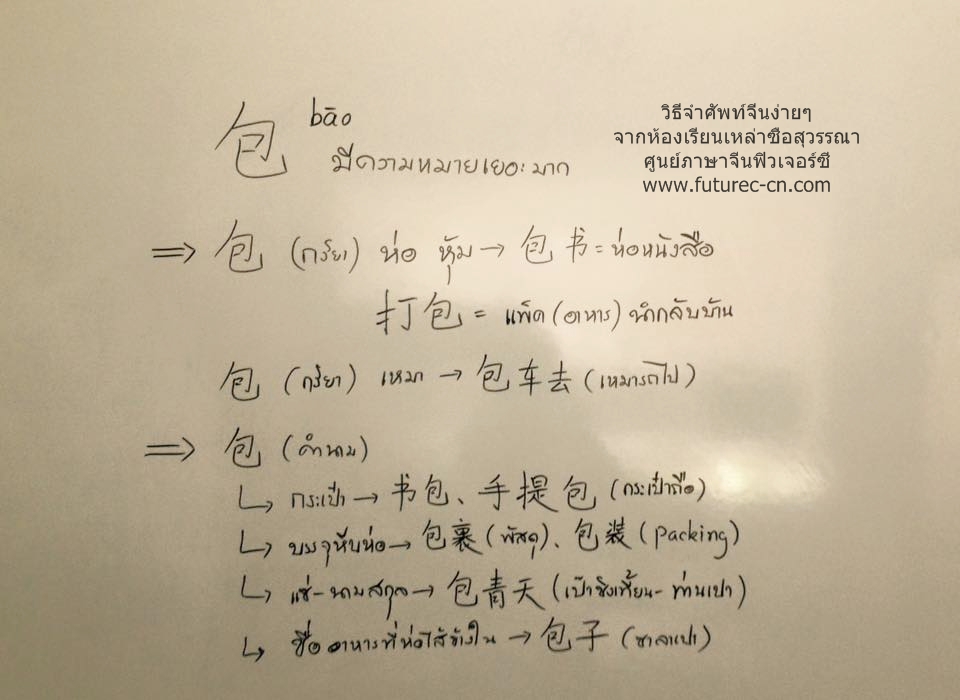 包 bāo
มีความหมายเยอะมาก
วิธีจำศัพท์จีนง่ายๆ
จากห้องเรียนเหล่าซือสุวรรณา
ศูนย์ภาษาจีนฟิวเจอร์ซี
www.futurec-cn.com
⇒ 包 (กริยา) ห่อ หุ้ม → 包书 = ห่อหนังสือ
打包 = แพ็ค (อาหาร) นำกลับบ้าน
包 (กริยา) เหมา → 包车去 (เหมารถไป)
⇒ 包 (คำนาม)
↳ กระเป๋า → 书包、手提包 (กระเป๋าถือ)
↳ บรรจุหีบห่อ → 包裹 (พัสดุ)、包装 (packing)
↳ แซ่-นามสกุล → 包青天 (เปาชิงเทียน-ท่านเปา)
↳ ชื่ออาหารที่ห่อไส้ข้างใน → 包子 (ซาลาเปา)